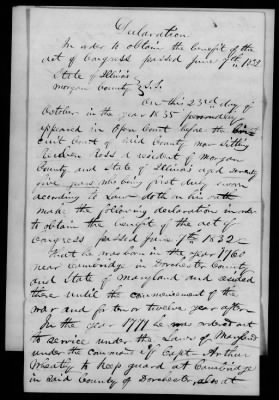 Declaration
In order to obtain the benefit of the
act of Congress passed June 7th 1832
State of Illinois
Morgan County } S.S.
On this 23rd day of
October in the year 1835 personally
appeared in Open Court before the Cir
cuit Court of said County now sitting
Reuben Ross a resident of Morgan
County and State of Illinois aged seventy
five years who being first duly sworn
according to Law doth on his oath
make the following declaration in order
to obtain the benefit of the act of
Congress passed June 7th 1832
That he was born in the year 1760
near Cambridge in Dorchester County
and State of Maryland and resided
there until the commencement of the
war and for ten or twelve years after
In the year 1777 he was ordered out
to service under the Laws of Maryland
under the command of Capt Arthur
Wheatly to keep guard at Cambridge
in said County of Dorchester, also at